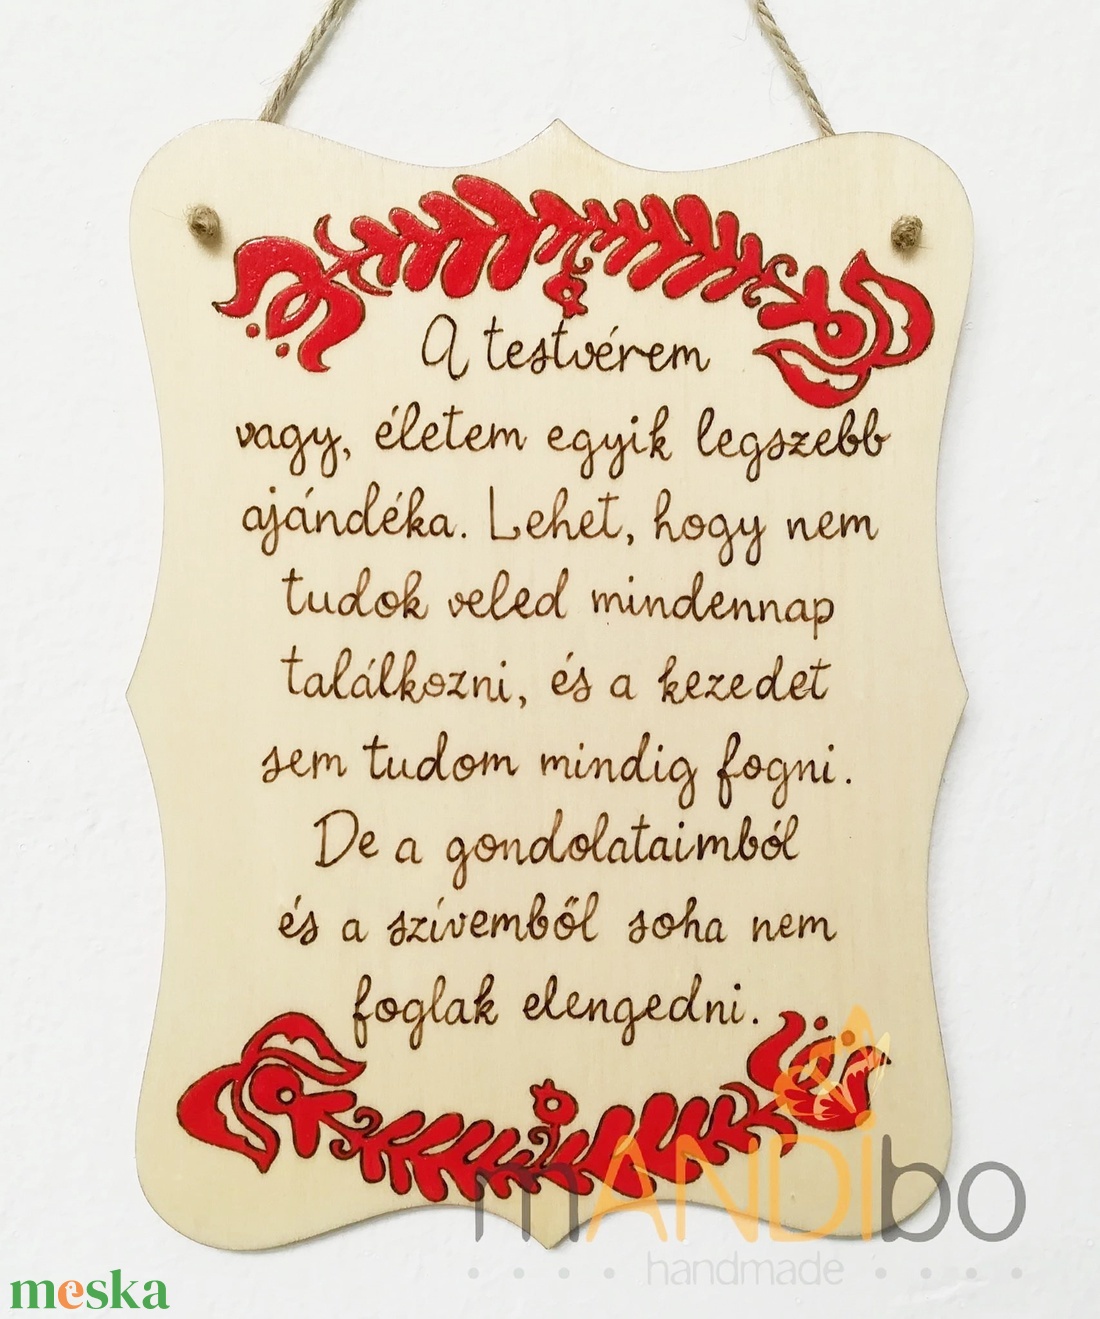 A testvérem
vagy, életem egyik legszebb
ajándéka. Lehet, hogy nem
tudok veled mindennap
találkozni, és a kezedet
sem tudom mindig fogni.
De a gondolataimból
és a szívemből soha nem
foglak elengedni.
mANDibo
handmade
meska